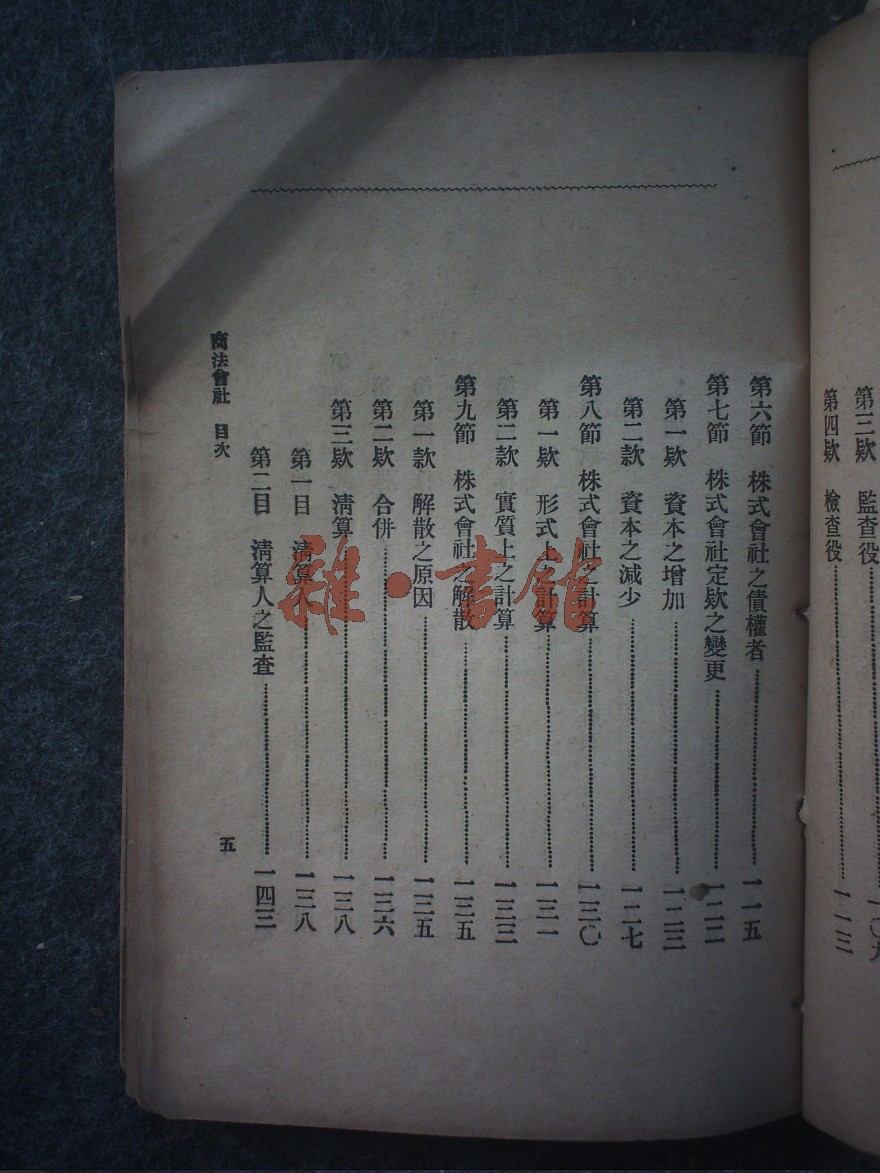 第三欵 監查役……一〇九
第四欵 檢查役……一一三
第六節 株式會社之債權者……一一五
第七節 株式會社定欵之變更……一二二
第一欵 資本之增加……一二三
第二款 資本之減少……一二七
第八節 株式會社之計算……一三〇
第一欵 形式上之計算……一三一
第二款 實質上之計算……一三三
第九節 株式會社之解散……一三五
第一款 解散之原因……一三五
第二欵 合併……一三六
第三欵 淸算……一三八
第一目 淸算人……一三八
第二目 淸算人之監査……一四三
商法會社 目次 五
雜·書館